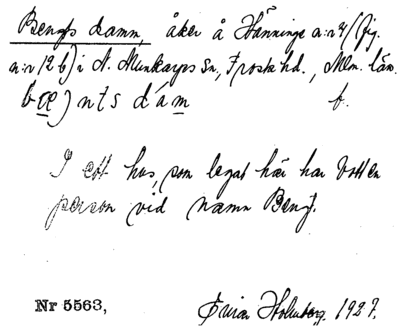 Bengts damm, åker å Hänninge a:nr 4 (fig.
a:nr 12 b) i N. Munkarps sn, Frosta hd., Mlm. län.
bæ)nts dám f.
I ett hus, som legat här har bott en
person vid namn Bengt.
Nr 5563, Holmberg. 1927.